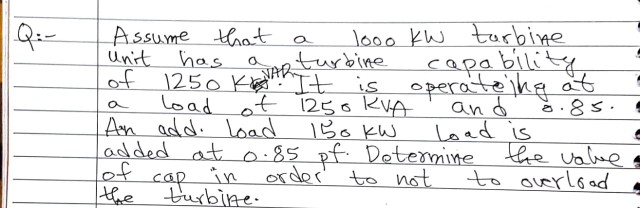 Q:- Assume that a 1000 KW turbine
unit has a turbine capability
of 1250 KVAR. It is operateing at
a load of 1250 KVA and 0.85.
An add. load 150 KW load is
added at 0.85 pf. Determine the value
of cap in order to not to overload
the turbine.